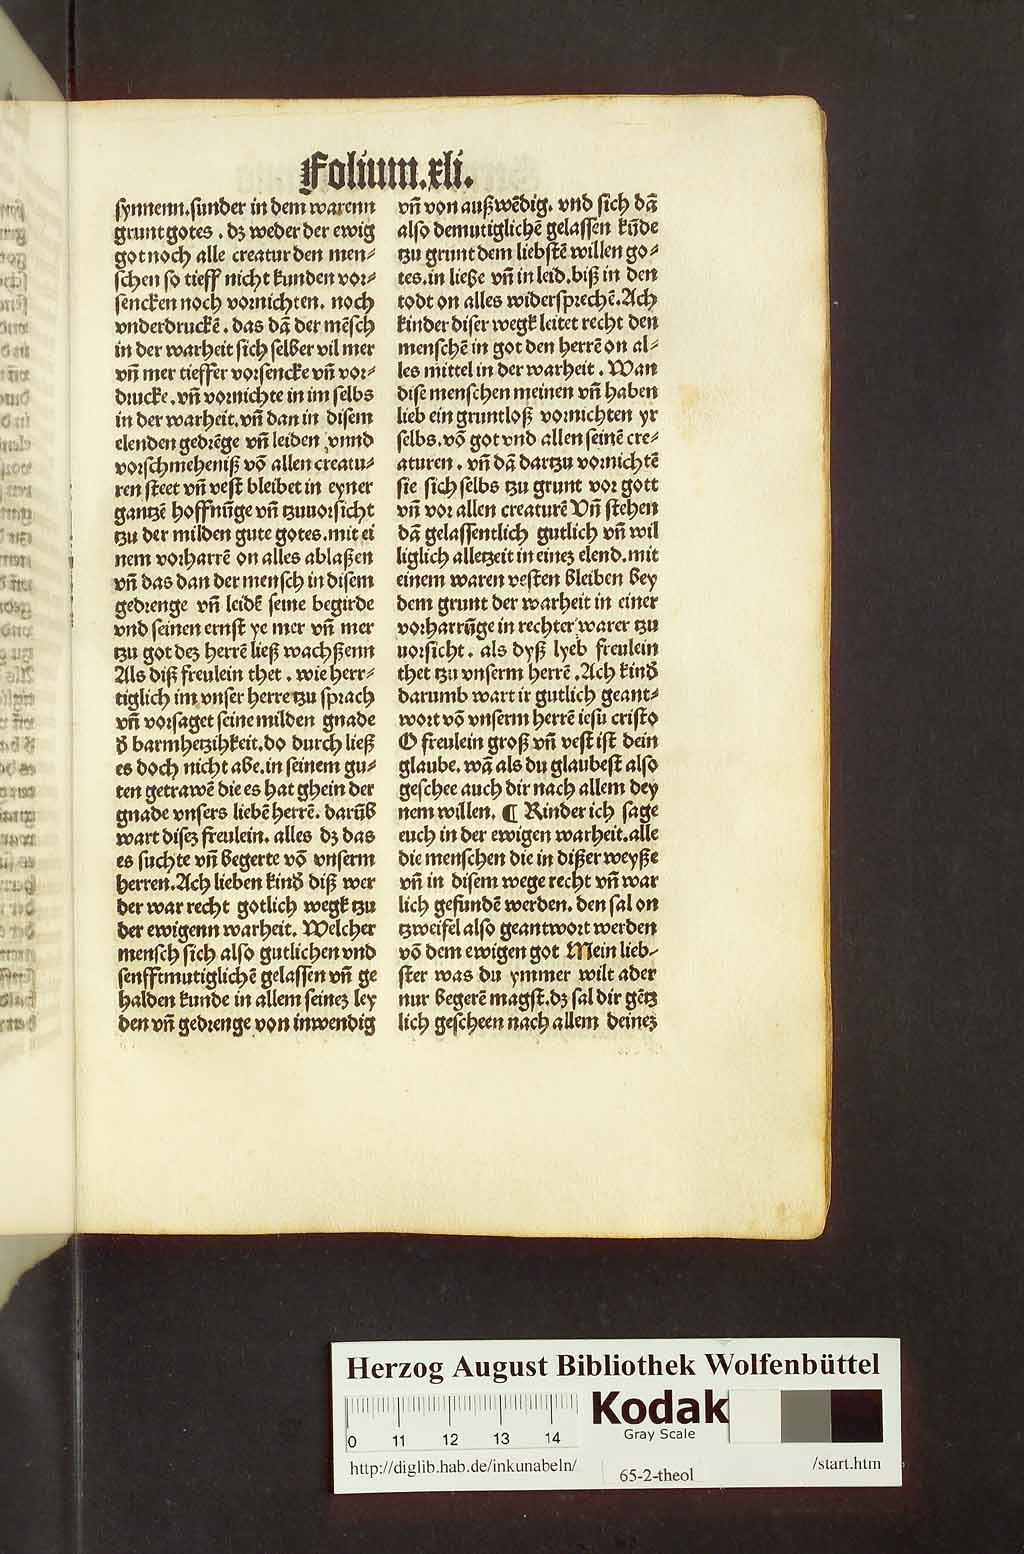 Folium.xli.
synnenn.sunder in dem warenn
grunt gotes . dz weder der ewig
got noch alle creatur den men⸗
schen so tieff nicht kunden vor⸗
sencken noch vornichten. noch
vnderdruckē . das dā der mēsch
in der warheit sich selber vil mer
vñ mer tieffer vorsencke vñ vor⸗
drucke . vñ vornichte in im selbs
in der warheit. vñ dan in disem
elenden gedrēge vñ leiden vnnd
vorschmeheniß vō allen creatu⸗
ren steet vñ vest bleibet in eyner
gantzē hoffnūge vñ tzuuorsicht
tzu der milden gute gotes.mit ei
nem vorharrē on alles ablaßen
vñ das dan der mensch in disem
gedrenge vñ leidē seine begirde
vnd seinen ernst ye mer vñ mer
tzu got dez herrē ließ wachßenn
Als diß freulein thet . wie herr⸗
tiglich im vnser herre tzu sprach
vñ vorsaget seine milden gnade
ď barmhertzihkeit. do durch ließ
es doch nicht abe.in seinem gu⸗
ten getrawē die es hat ghein der
gnade vnsers liebē herrē. darūb
wart disez freulein. alles dz das
es suchte vñ begerte vō vnserm
herren.Ach lieben kinď diß wer
der war recht gotlich wegk tzu
der ewigenn warheit. Welcher
mensch sich also gutlichen vnd
senfftmutiglichē gelassen vñ ge
halden kunde in allem seinez ley
den vñ gedrenge von inwendig
vñ von außwēdig. vnd sich dā
also demutiglichē gelassen kūde
tzu grunt dem liebstē willen go⸗
tes.in liebe vñ in leid.biß in den
todt on alles widersprechē.Ach
kinder diser wegk leitet recht den
menschē in got den herrē on al⸗
les mittel in der warheit . Wan
dise menschen meinen vñ haben
lieb ein gruntloß vornichten yr
selbs. vō got vnd allen seinē cre⸗
aturen . vñ dā dartzu vornichtē
sie sich selbs tzu grunt vor gott
vñ vor allen creaturē Vñ stehen
dā gelassentlich gutlich vñ wil
liglich alletzeit in einez elend. mit
einem waren vesten bleiben bey
dem grunt der warheit in einer
vorharrūge in rechter warer tzu
uorsicht. als dyß lyeb freulein
thet tzu vnserm herrē . Ach kinď
darumb wart ir gutlich geant⸗
wort vō vnserm herrē iesu cristo
O freulein groß vñ vest ist dein
glaube. wā als du glaubest also
geschee auch dir nach allem dey
nem willen. ¶ Kinder ich sage
euch in der ewigen warheit.alle
die menschen die in dißer weyße
vñ in disem wege recht vñ war
lich gefundē werden. den sal on
tzweifel also geantwort werden
vō dem ewigen got Mein lieb⸗
ster was du ymmer wilt ader
nur begerē magst.dz sal dir gētz
lich gescheen nach allem deinez
Herzog August Bibliothek Wolfenbüttel
0 11 12 13 14
Kodak
Gray Scale
http://diglib.hab.de/inkunabeln/ 65-2-theol /start.htm